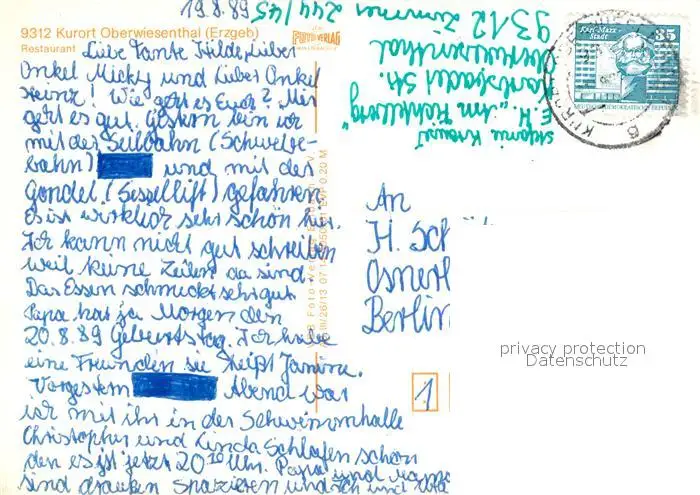 19.8.89
9312 Kurort Oberwiesenthal (Erzgeb)
Restaurant
Liebe Tante Hilde, Lieber
Onkel Micky und Lieber Onkel
Heinz! Wie geht es Euch? Mir
geht es gut. Gestern bin ich
mit der Seilbahn (Schwebe-
bahn) und mit der
Gondel (Sessellift) gefahren.
Es ist wirklich sehr schön hir.
Ich kann nicht gut schreiben
weil keine Zeilen da sind.
Das Essen schmeckt sehr gut
Papa hat ja Morgen den
20.8.89 Geburtstag. Ich habe
eine Freunden sie heißt Janine.
Vorgestern Abend war
ich mit ihr in der Schwimmhalle
Christopher und Linda Schlafen schon
den es ist jetzt 20 10 Uhr. Papa und
sind draußen Spazieren und ich und
Stefanie
E.H. "Am Fichtelberg"
Karlsbader Str.
Oberwiesenthal
9312 Zimmer 244/45
VERLAG
Karl-Marx-
Stadt
35
DEUTSCHE DEMOKRATISCHE REPUBLIK
An
H. Sch
Berlin
1
privacy protection
Datenschutz